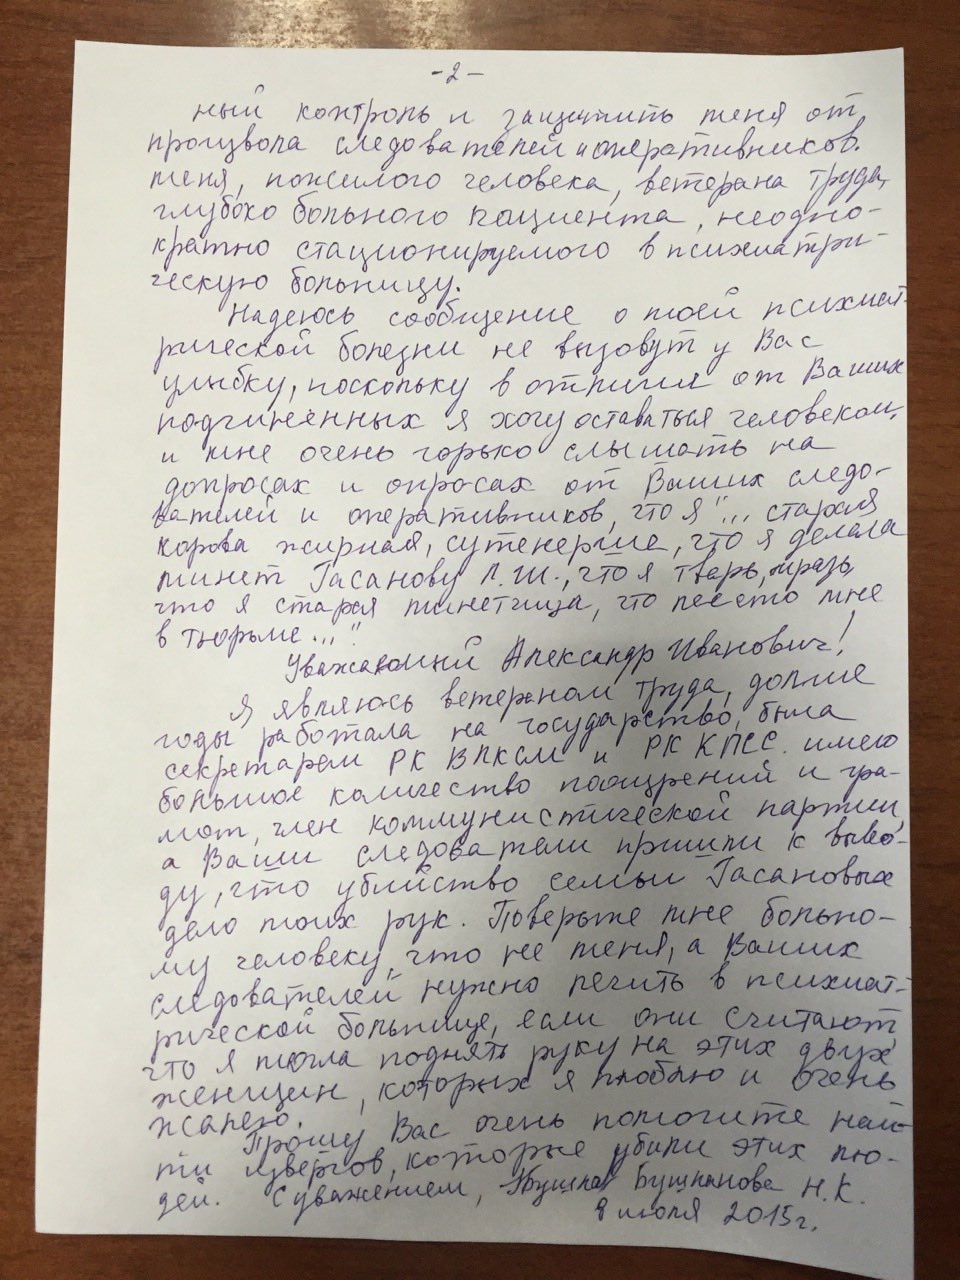 - 2 -
ный контроль и защитить меня от
произвола следователей и оперативников.
меня, пожилого человека, ветерана труда,
глубоко больного пациента, неодно-
кратно стационируемого в психиатри-
ческую больницу.
Надеюсь сообщение о моей психиат-
рической болезни не вызовут у Вас
улыбку, поскольку в отличии от Ваших
подчиненных я хочу оставаться человеком,
и мне очень горько слышать на
допросах и опросах от Ваших следо-
вателей и оперативников, что я "... старая
корова жирная, сутенерше, что я делала
минет Гасанову Л.Ш., что я тварь, мразь,
что я старая минетчица, что место мне
в тюрьме..."
Уважаемый Александр Иванович!
Я являюсь ветераном труда, долгие
годы работала на государство, была
секретарем РК ВЛКСМ и РК КПСС. имею
большое количество поощрений и гра-
мот, член коммунистической партии,
а Ваши следователи пришли к выво-
ду, что убийство семьи Гасановых
дело моих рук. Поверьте мне больно-
му человеку, что не меня, а Ваших
следователей нужно лечить в психиат-
рической больнице, если они считают
что я могла поднять руку на этих двух
женщин, которых я люблю и очень
жалею.
Прошу Вас очень помогите най-
ти извергов, которые убили этих лю-
дей. С уважением, Бушланова Н.К.
8 июля 2015г.